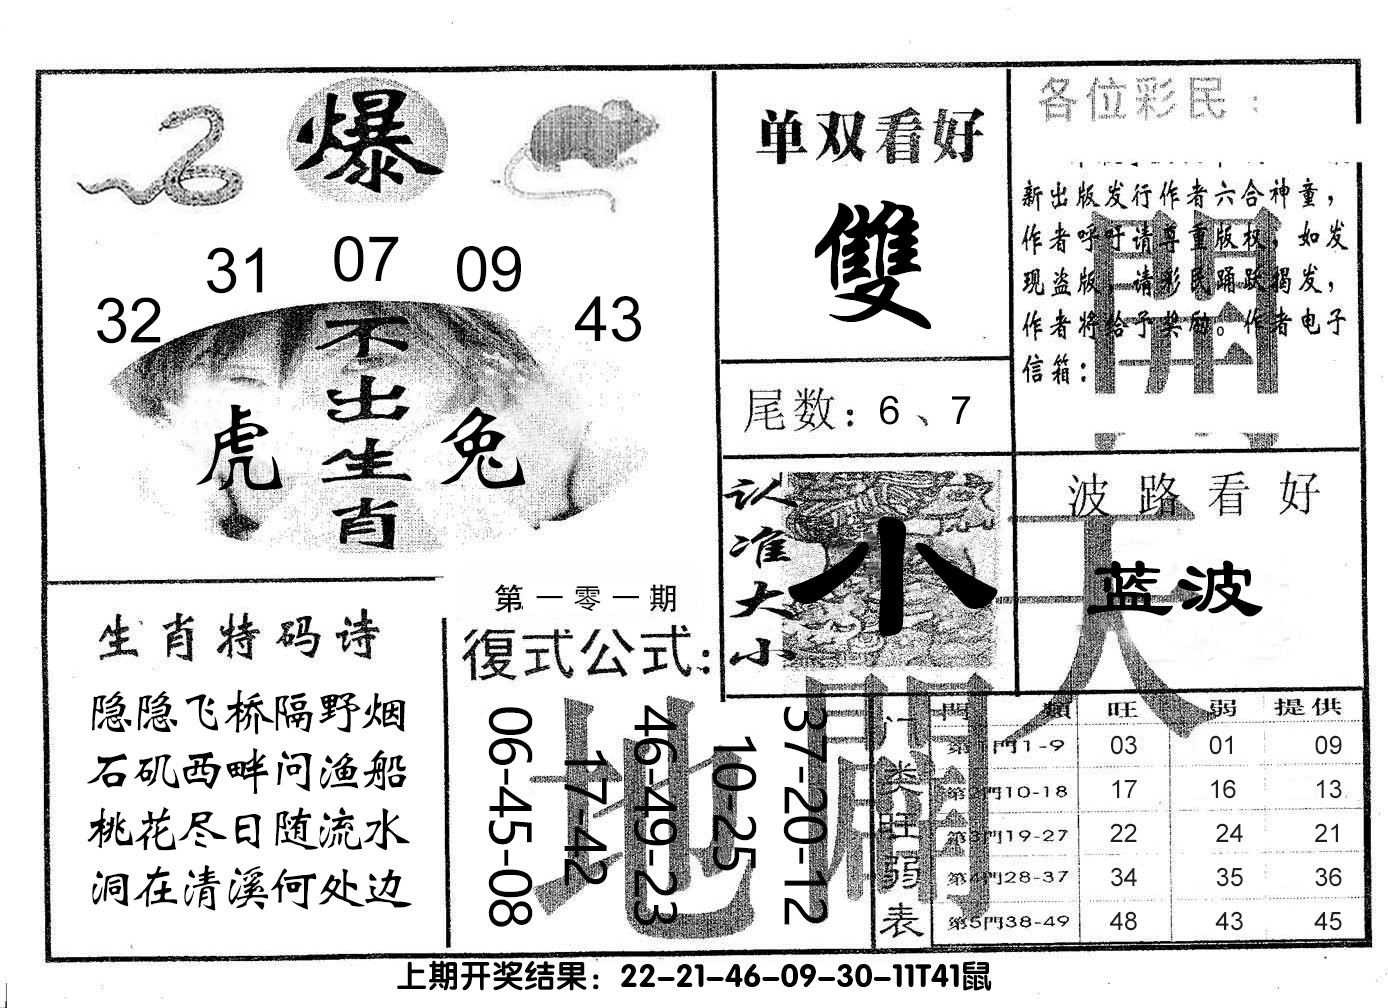 爆
31 07 09
32 43
不出生肖
虎 兔
单双看好
雙
尾数：6、7
各位彩民：
新出版发行作者六合神童，
作者呼吁请尊重版权，如发
现盗版，请彩民踊跃揭发，
作者将给予奖励。作者电子
信箱：
認准大小
小
波路看好
蓝波
生肖特码诗
隐隐飞桥隔野烟
石矶西畔问渔船
桃花尽日随流水
洞在清溪何处边
第一零一期
復式公式：
06-45-08
17-42
46-49-23
10-25
37-20-12
天
地
門类旺弱表
門 類 旺 弱 提供
第1門1-9 03 01 09
第2門10-18 17 16 13
第3門19-27 22 24 21
第4門28-37 34 35 36
第5門38-49 48 43 45
上期开奖结果：22-21-46-09-30-11T41鼠